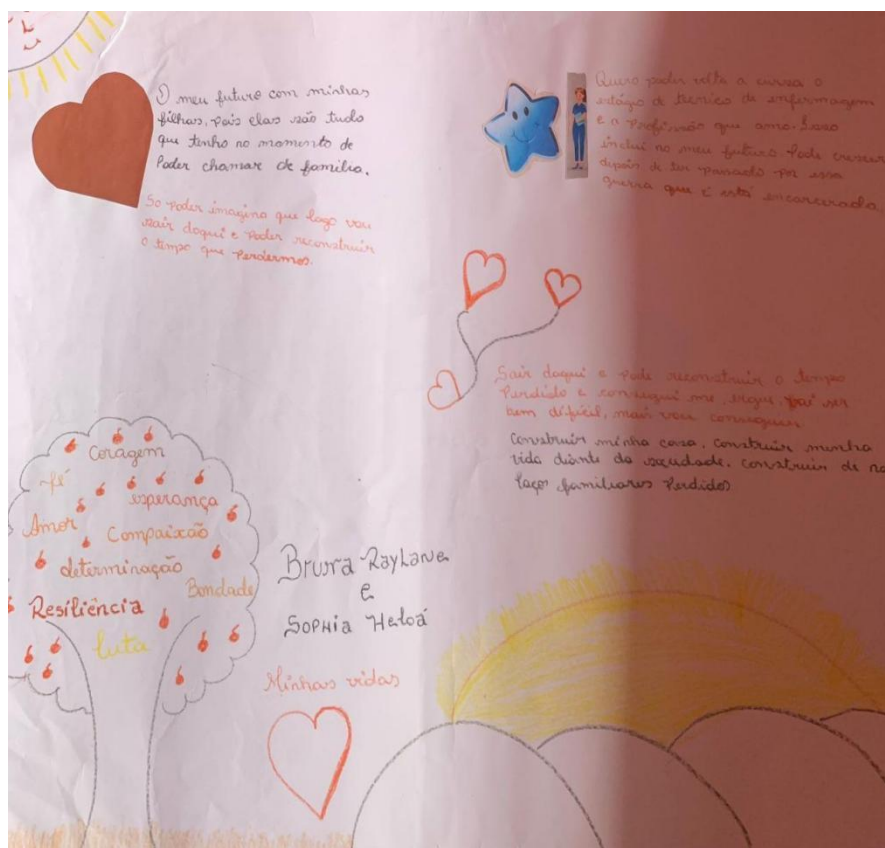 O meu futuro com minhas
filhas, pois elas são tudo
que tenho no momento de
Poder chamar de família.
So poder imagina que logo vou
sair daqui e poder reconstruir
o tempo que perdermos.
Quero poder volta a cursa o
estágio de tecnico de enfermagem
e a Profissão que amo. Isso
inclui no meu futuro. Pode crescer
depois de ter passado por essa
guerra que é está encarcerada
Sair daqui e pode reconstruir o tempo
Perdido e consegui me, vai ser
bem difícil, mais vou conseguir
Construir minha casa, construir minha
vida diante da socidade, construir de no
laços familiares Perdidos
Coragem
fé
esperança
Amor
Compaixão
determinação
Bondade
Resiliência
luta
Bruna Raylane
e
Sophia Heloá
Minhas vidas